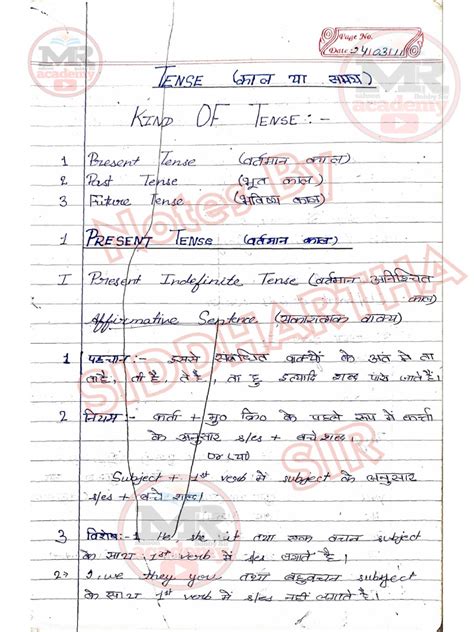 Page No.
Date 24/03/11
TENSE (काल या समय)
KIND OF TENSE :-
1 Present Tense (वर्तमान काल)
2 Past Tense (भूत काल)
3 Future Tense (भविष्य काल)
1 PRESENT TENSE (वर्तमान काल)
I Present Indefinite Tense (वर्तमान अनिश्चित काल)
Affirmative Sentence (सकारात्मक वाक्य)
1 पहचान :- इससे संबंधित वाक्यों के अंत में ता
ता है, ती है, ते है, ता हु इत्यादि शब्द पाये जाते हैं।
2 नियम :- कर्ता + मु० क्रि० के पहले रूप में कर्त्ता
के अनुसार s/es + बचे शब्द।
Or (या)
Subject + 1st verb में subject के अनुसार
s/es + बचे शब्द।
3 विशेष:- 1 He, she, it तथा एक वचन subject
के साथ 1st verb में s/es लगाते है।
2> I, we they you तथा बहुवचन subject
के साथ 1st verb में s/es नहीं लगाते है।
MR
academy
Notes By
SIDDHARTHA
SIR